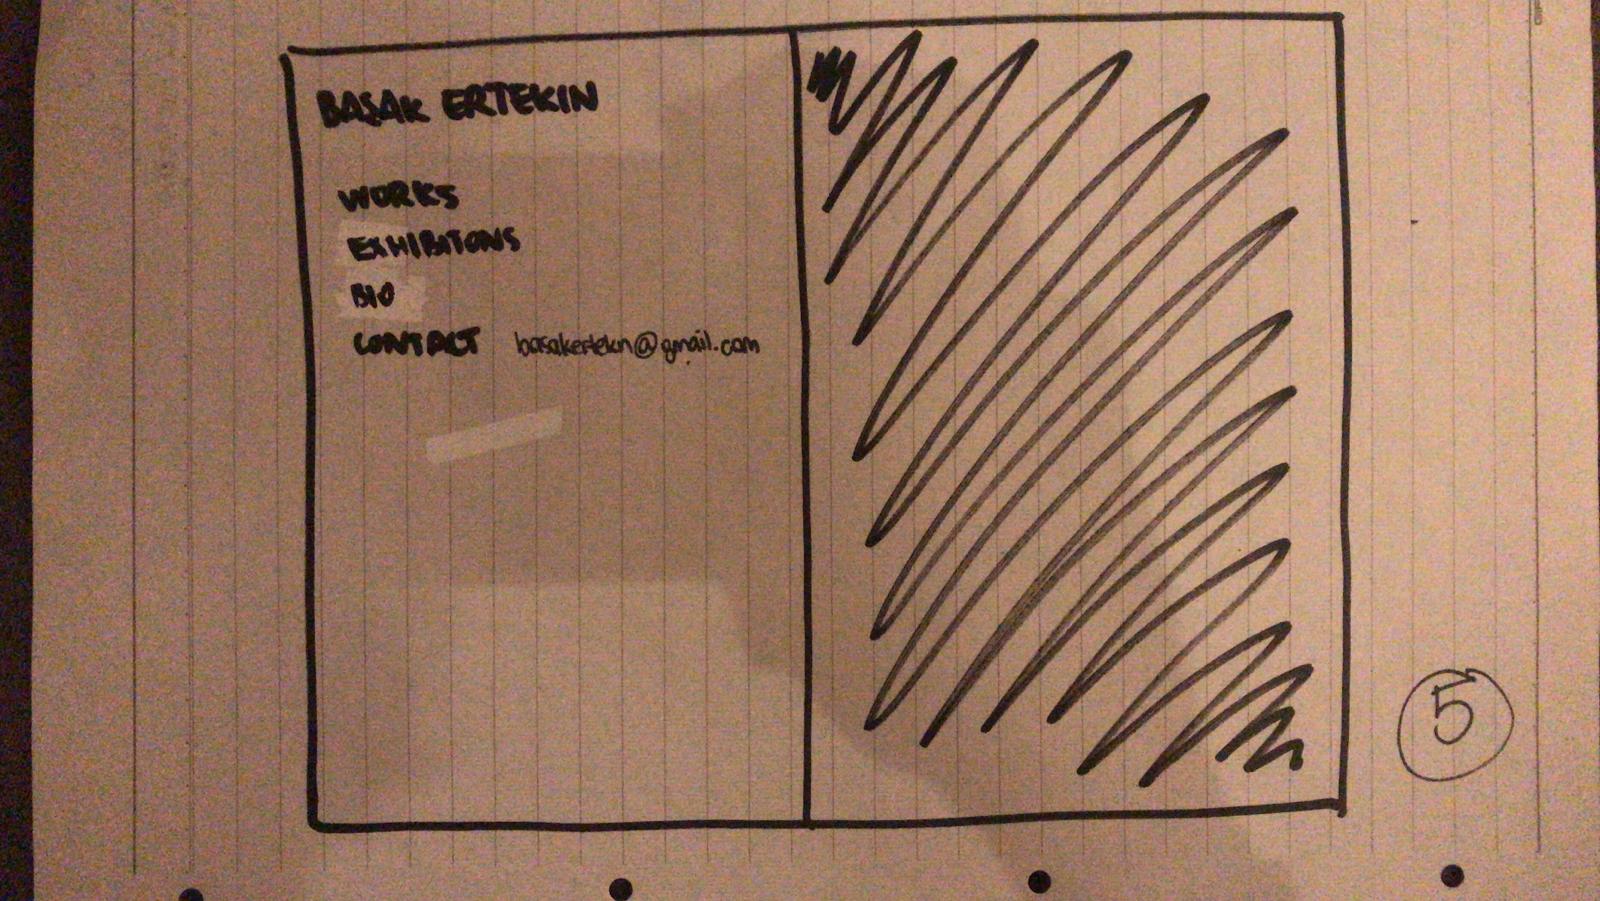 BAŞAK ERTEKIN
WORKS
EXHIBITONS
BIO
CONTACT basakertekn@gmail.com
5